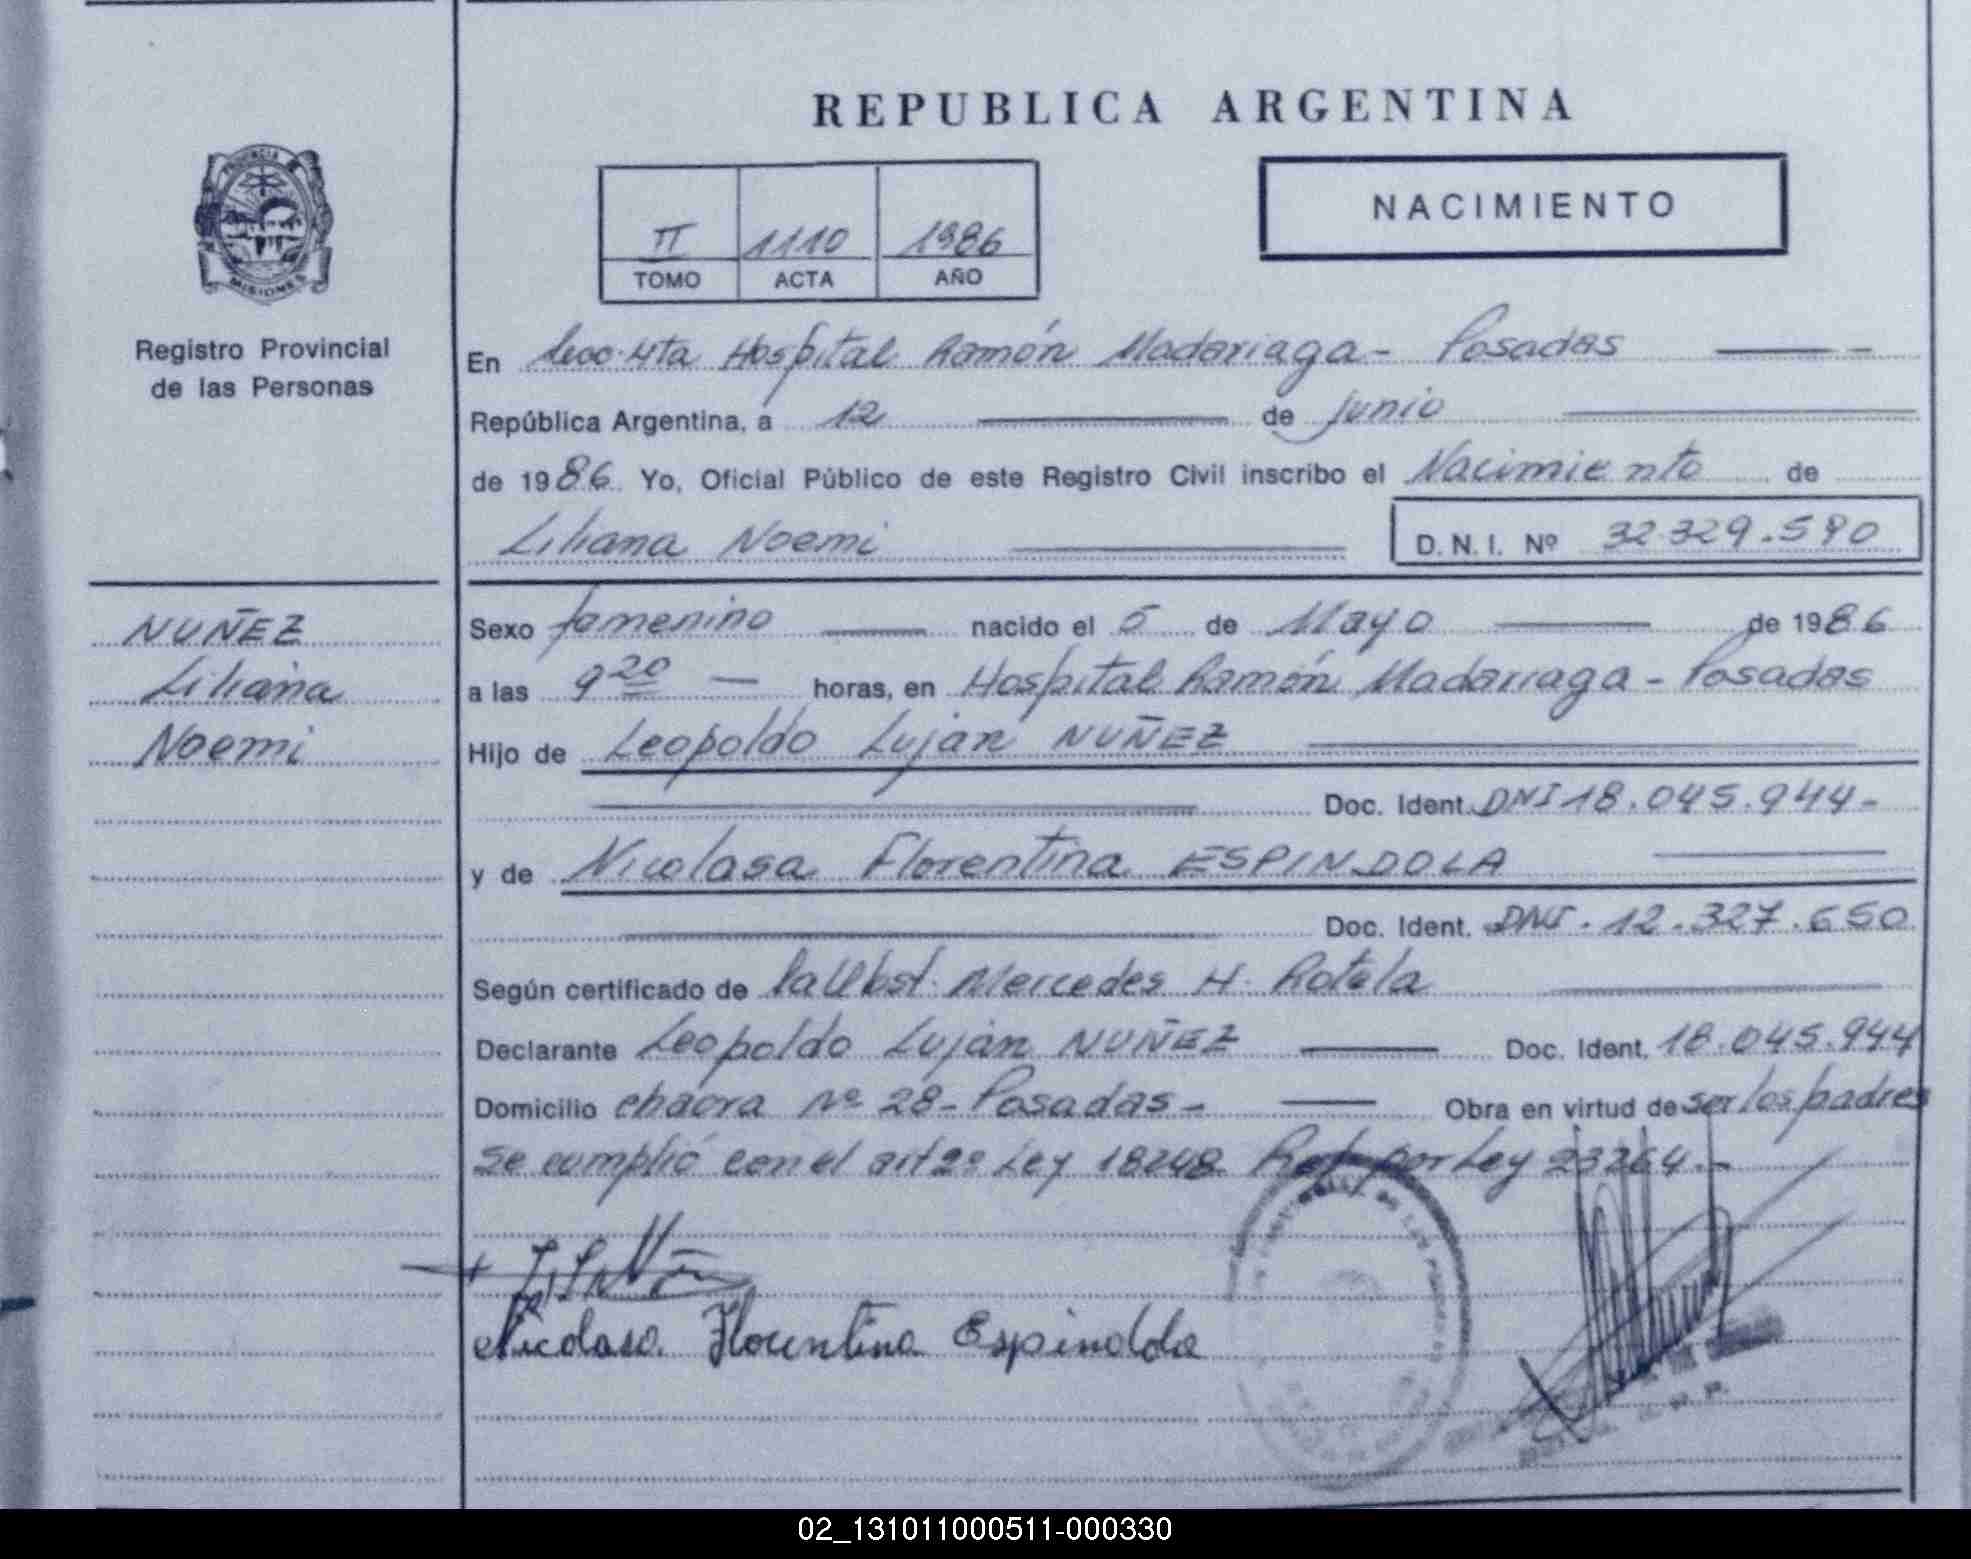 REPUBLICA ARGENTINA
PROVINCIA
MISIONES
Registro Provincial
de las Personas
II 1110 1986
TOMO ACTA AÑO
NACIMIENTO
En Secc. 4ta Hospital Ramón Madariaga - Posadas
República Argentina, a 12 de junio
de 1986. Yo, Oficial Público de este Registro Civil inscribo el Nacimiento de
Liliana Noemi D. N. I. Nº 32.329.590
NUÑEZ
Liliana
Noemi
Sexo femenino nacido el 5 de Mayo de 1986
a las 9 20 horas, en Hospital Ramón Madariaga - Posadas
Hijo de Leopoldo Luján NUÑEZ
Doc. Ident. DNI 18.045.944-
y de Nicolasa Florentina ESPINDOLA
Doc. Ident. DNI. 12.327.650
Según certificado de la Obst. Mercedes H. Rotela
Declarante Leopoldo Luján NUÑEZ Doc. Ident. 18.045.944
Domicilio chacra Nº 28 - Posadas - Obra en virtud de ser los padres
Se cumplió con el art 2º Ley 18248 Ref. por Ley 23264.-
Nicolasa Florentina Espindola
02_131011000511-000330